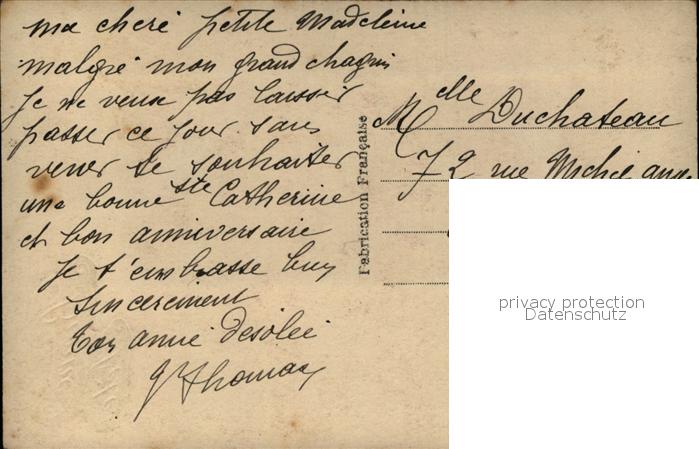 ma cheré petite Madeleine
malgré mon grand chagrin
je ne veux pas laisser
passer ce jour sans
venir te souhaiter
une bonne Ste Catherine
et bon anniversaire
Je t'embrasse bien
Sincerement
Ton amie desolée
Thomas
Fabrication Française
Melle Duchateau
72 rue Michel ange
privacy protection
Datenschutz